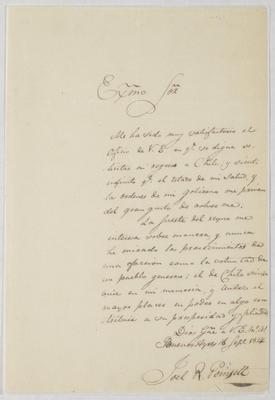 Exmo Sor
Me ha sido muy satisfactorio el
oficio de V. E. en qe se digna so-
licitar mi regreso a Chile, y siento
infinito qe el estado de mi salud, y
las ordenes de mi gobierno me priven
del gran gusto de
La suerte del reyno me
interesa sobre manera, y nunca
he mirado los procedimientos de
una como la voluntad de
un pueblo generoso; el de Chile
en mi memoria, y tendré el
mayor placer en poder en algo con-
tribuir a su prosperidad y
Dios Gue a V. E. ms as
Buenos Ayres 16 Sepe 1814
Joel R. Poinsett